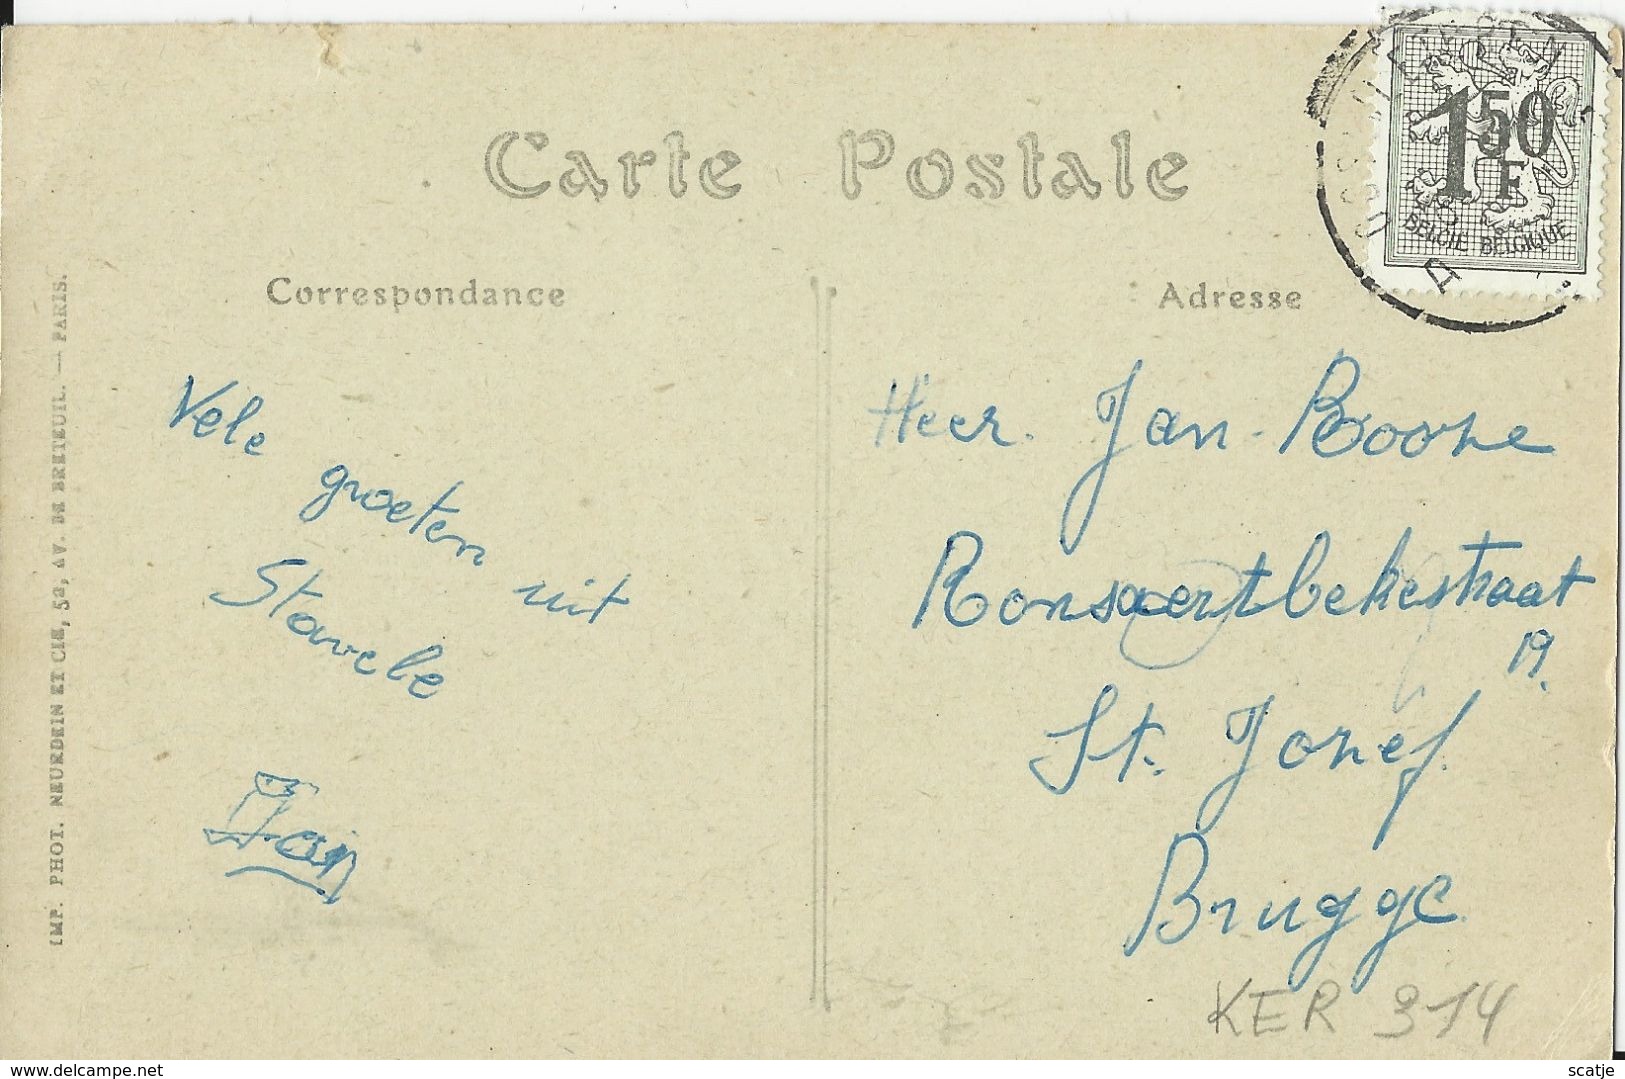 Carte Postale
Correspondance
Adresse
1 50
F
BELGIE BELGIQUE
A
Vele groeten uit
Stavele
Jan
Heer. Jan Boone
Ronsaertbekestraat
19.
St. Jozef.
Brugge
KER 314
IMP. PHOT. NEURDEIN ET CIE, 52, AV. DE BRETEUIL. — PARIS.
www.delcampe.net
scatje